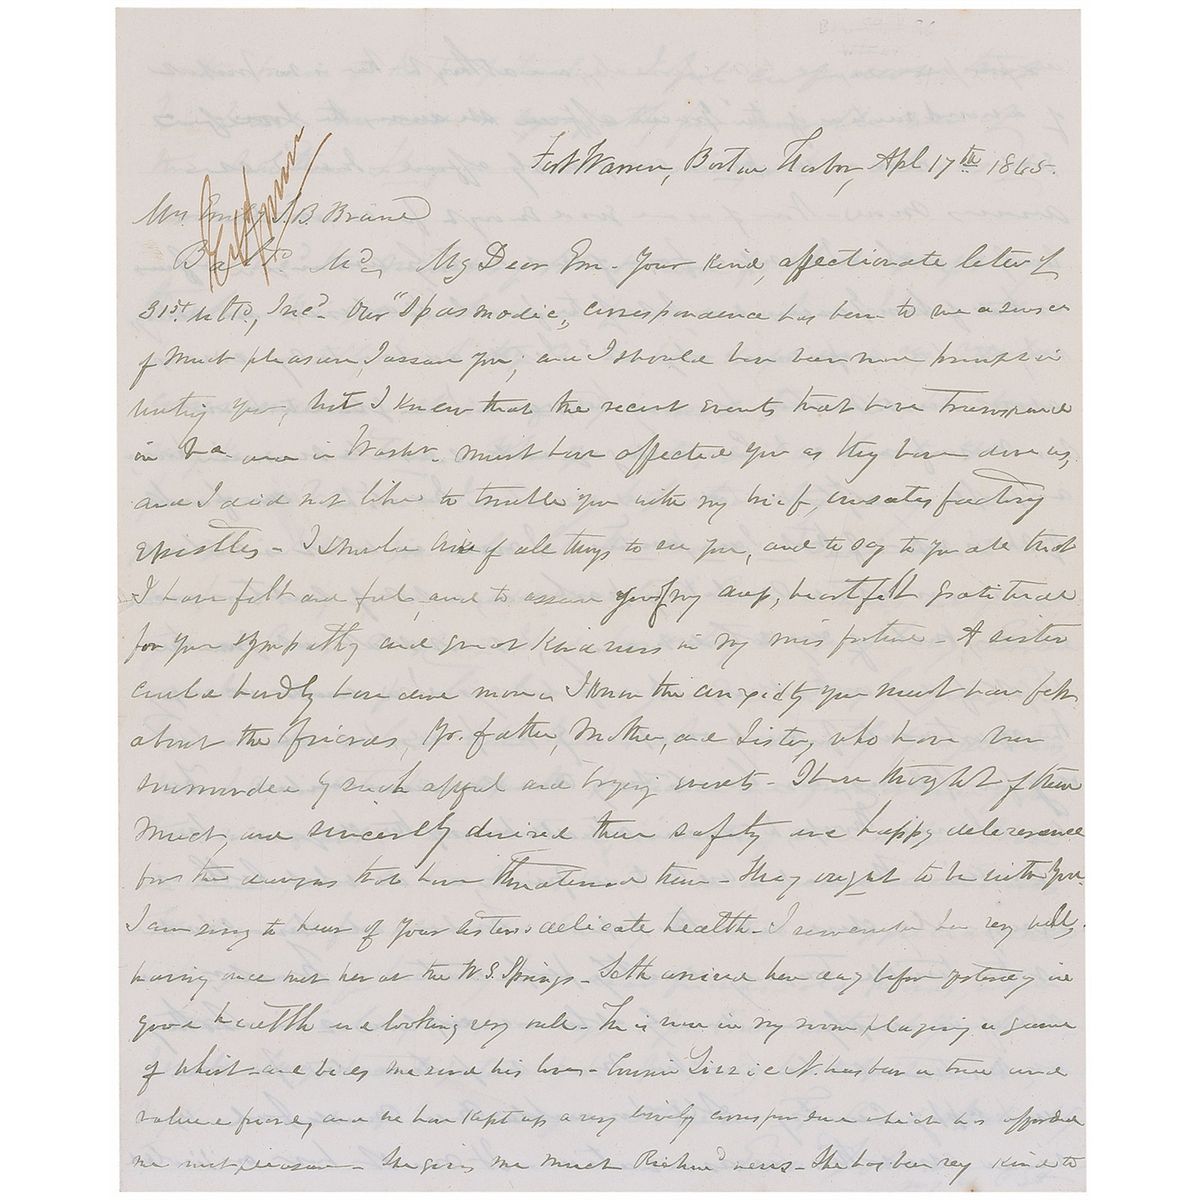 Fort Warren, Boston Harbor, Apl 17th 1865.
Mrs Emily J. B. Brand
Balto Md, My Dear Em - Your kind, affectionate letter of
31st ulto, Incd. Our "Spasmodic" correspondence has been to me a source
of much pleasure, I assure you; and I should have been more prompt in
writing you, but I knew that the recent events that have transpired
in Va. and in Washn. must have affected you as they have done us,
and I did not like to trouble you with my brief, unsatisfactory
epistles - I should like of all things to see you, and to say to you all that
I have felt and feel, and to assure you of my deep, heartfelt gratitude
for your sympathy and great kindness in my misfortune - A sister
could hardly have done more. I know the anxiety you must have felt
about the friends, Yr. father, Mother, and Sister, who have been
surrounded by such awful and trying events - I have thought of them
much, and sincerely desired their safety and happy deliverance
from the dangers that have threatened them - They ought to be with you.
I am sorry to hear of your sisters delicate health - I remember her very well,
having once met her at the W. S. Springs - Seth arrived here day before yesterday in
good health and looking very well - He is now in my room playing a game
of whist - and bids me send his love - Cousin Lizzie N. has been a true and
valued friend, and we have kept up a very lively correspondence which has afforded
me much pleasure - She gives me much Richmd news - She has been very kind to